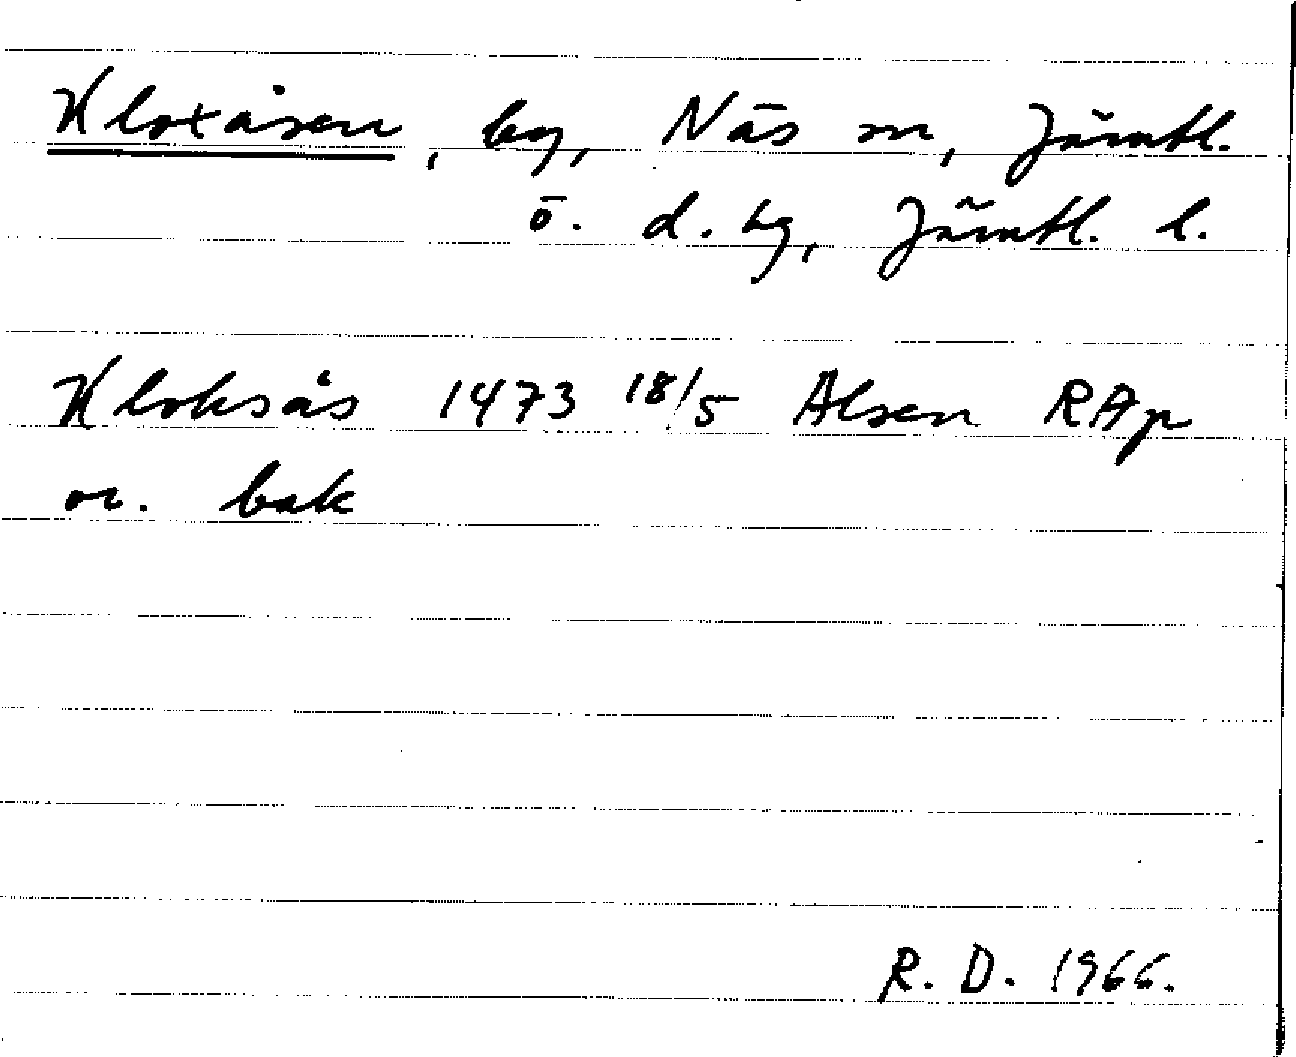 Kloxåsen, by, Näs sn, Jämtl.
ö. d. hg, Jämtl. l.
Kloksås 1473 18/5 Alsen RAp
or. bak
R. D. 1966.